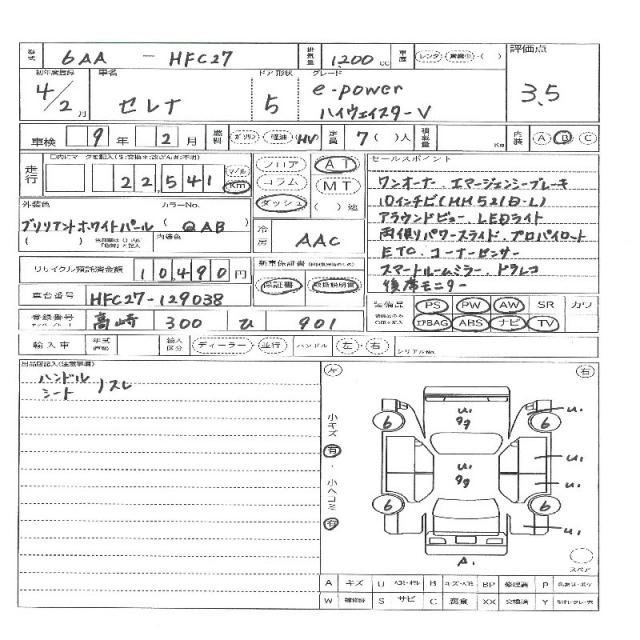 型式 6AA - HFC27 排気量 1,200 cc 車歴 レンタ・( )・( ) 評価点
初年度登録 車名 ドア 形状 グレード
4/2月 セレナ 5 e-power ハイウェイスターV 3.5
車検 9年 2月 燃料 ガソリン・軽油・(HV) 定員 7( )人 積載量 Kg 内装 A B C
走行 22,541 マイル Km
フロア AT
コラム MT
ダッシュ ( )速
セールスポイント
ワンオーナー エマージェンシーブレーキ
10インチナビ(MM521D-L)
アラウンドビュー LEDライト
両側パワースライド・プロパイロット
ETC コーナーセンサー
スマートルームミラー・ドラレコ
後席モニター
外装色 カラーNo.
ブリリアントホワイトパール (QAB)
( ) 内装色
冷房 AAC
リサイクル預託済金額 10490円
新車保証書
保証書 取扱説明書
車台番号 HFC27-129038
装備品 PS PW AW SR カワ
エアBAG ABS ナビ TV
登録番号 高崎 300 ひ 901
輸入車 年式 輸入区分 ディーラー・並行 ハンドル 左・右 シリアルNo.
出品店記入(注意事項)
ハンドル
シート
スレ
左 右
小キズ 有・小ヘコミ 有
U.
99
U.
6 6
U.
99
U.
U.
6 6
U.
A.
スペア
A キズ U B BP 修理跡 P
W 補修跡 S サビ C 腐食 XX 交換済 Y